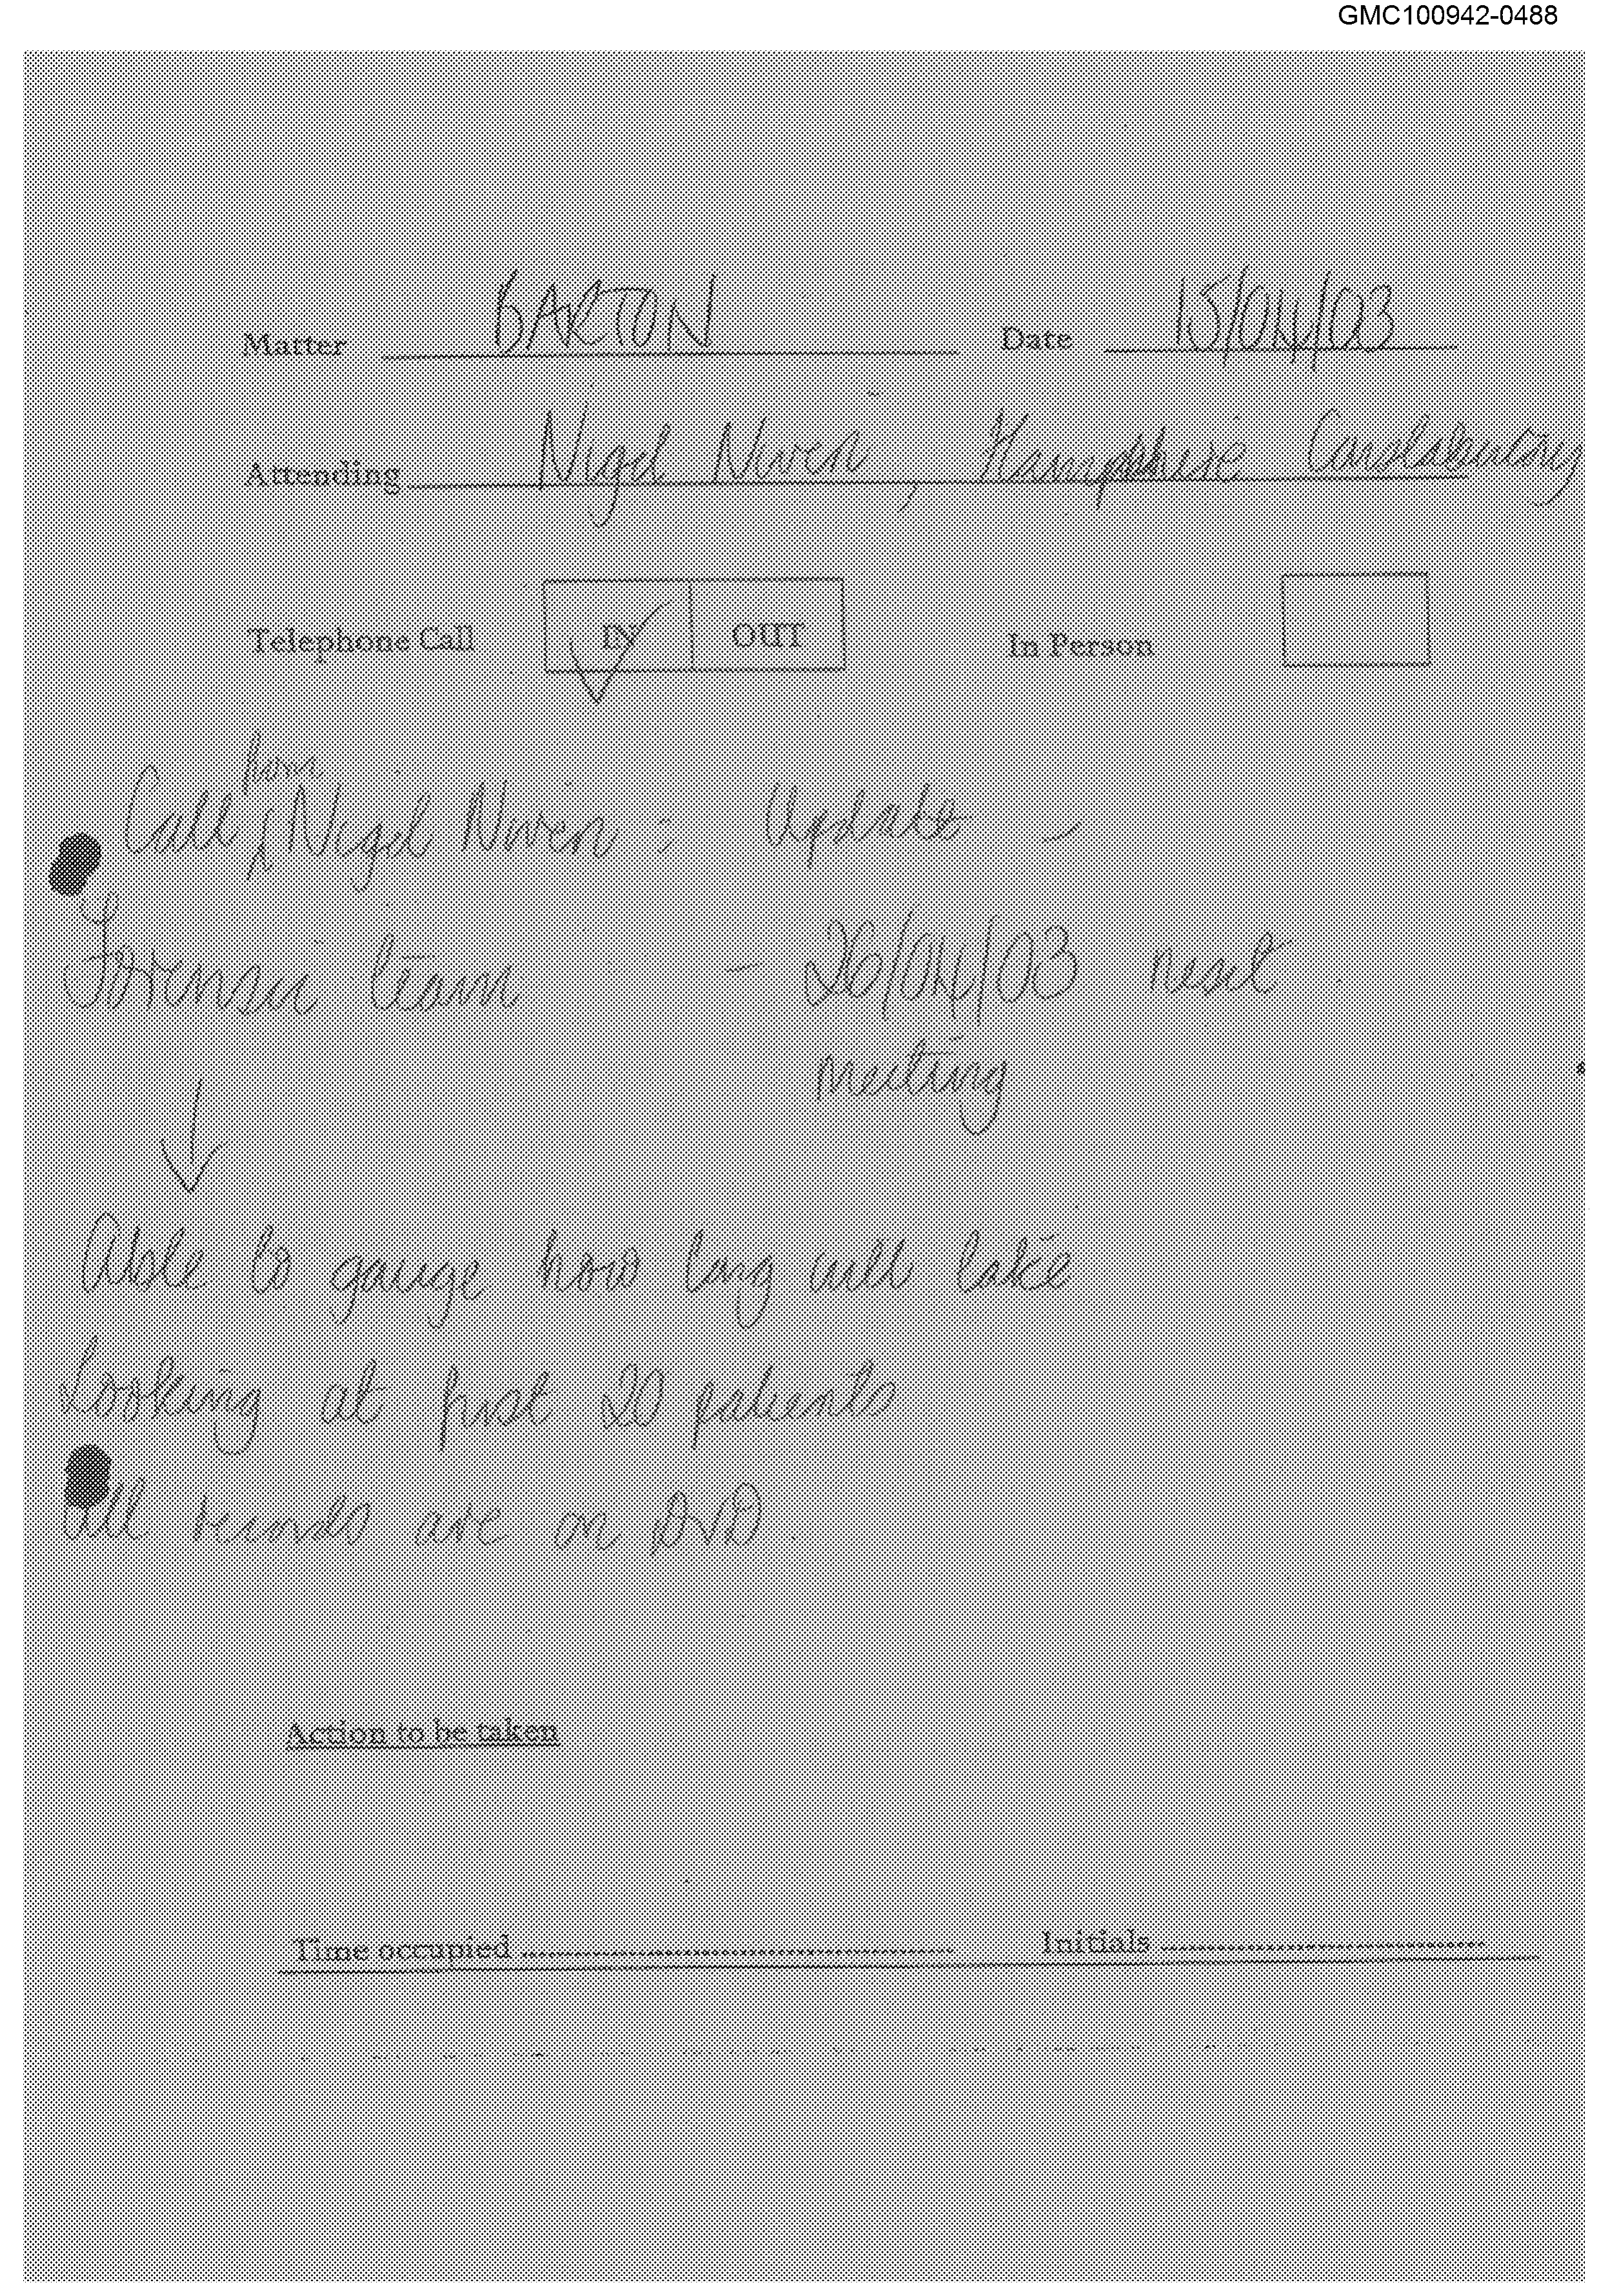 GMC100942-0488
Matter BARTON Date 15/04/03
Attending Nigel Niven, Hampshire Constabulary
Telephone Call IN OUT In Person
from
Call Nigel Niven : Update -
Forensic team - 26/04/03 next
meeting
Able to gauge how long will take
Looking at first 20 patients
All are on DVD
Action to be taken
Time occupied Initials